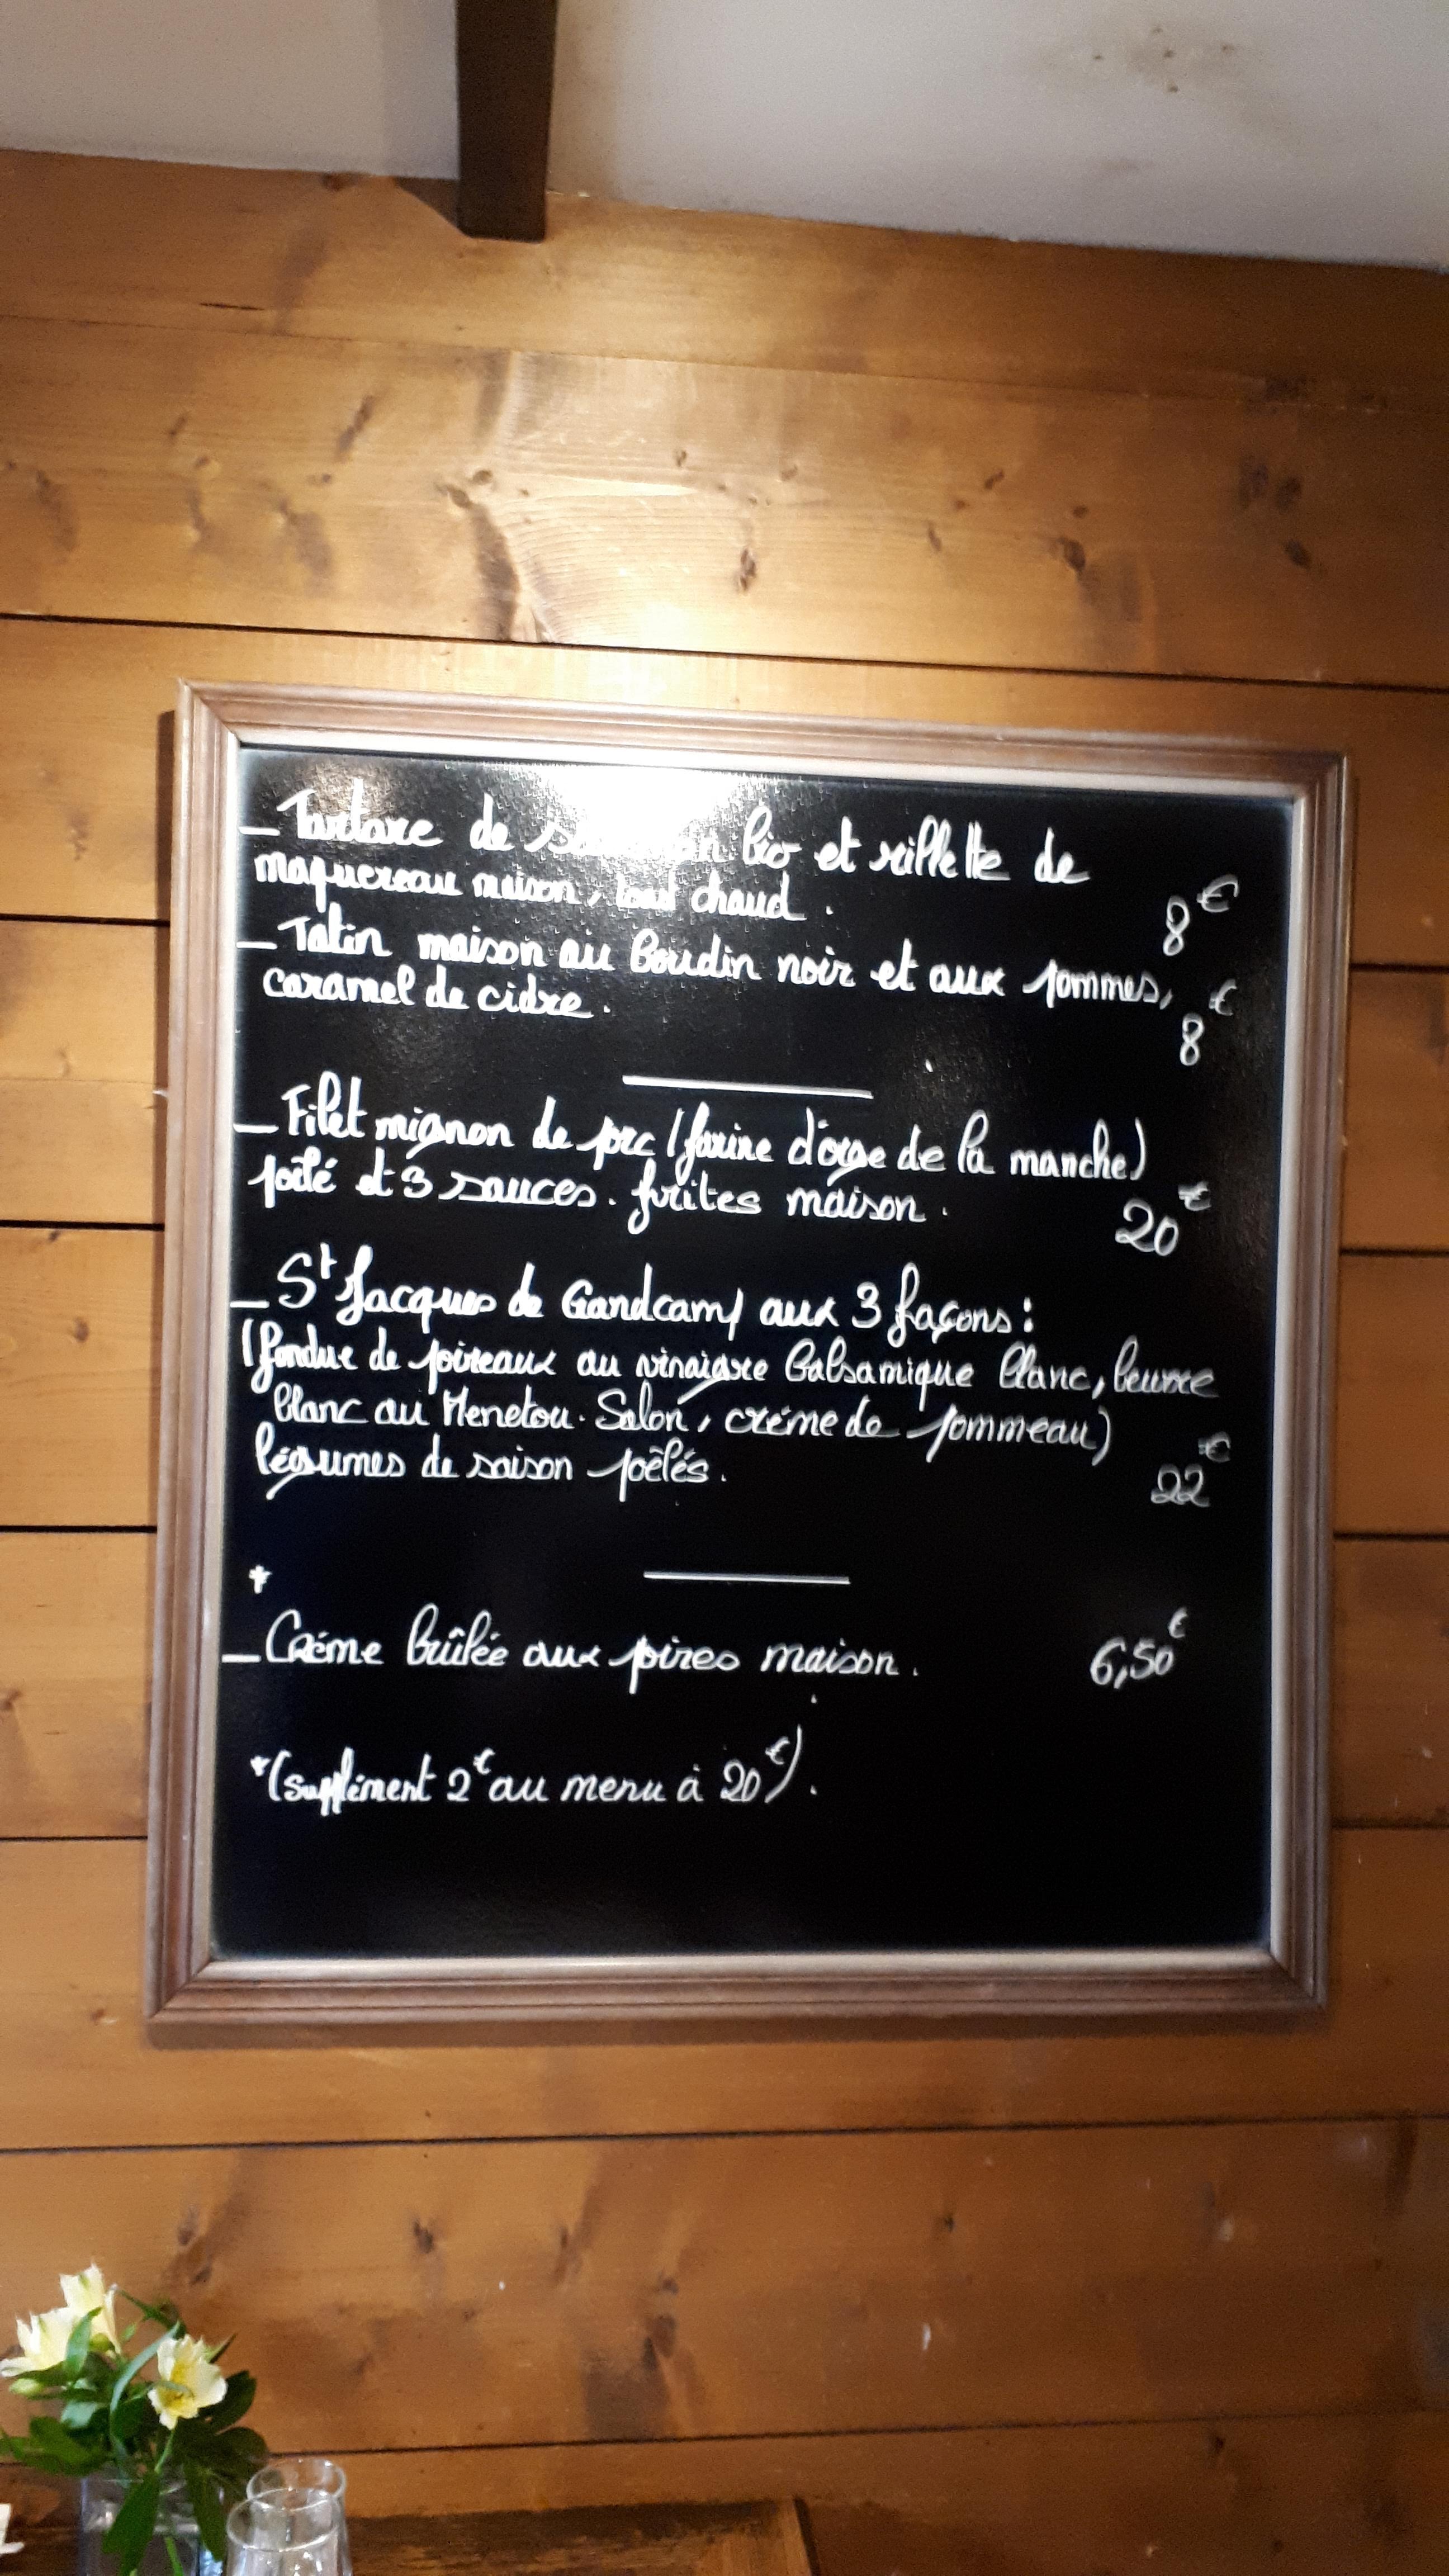 – Tartare de saumon bio et rillette de
maquereau maison, toast chaud.
8€
– Tatin maison au boudin noir et aux pommes,
caramel de cidre.
8€
– Filet mignon de porc (farine d'orge de la manche)
poêlé et 3 sauces. frites maison.
20€
– St Jacques de Grandcamp aux 3 façons:
(fondue de poireaux au vinaigre balsamique blanc, beurre
blanc au Menetou-Salon, crème de pommeau)
légumes de saison poêlés.
22€
*
– Crème brûlée aux poires maison. 6,50€
*(supplément 2€ au menu à 20€).